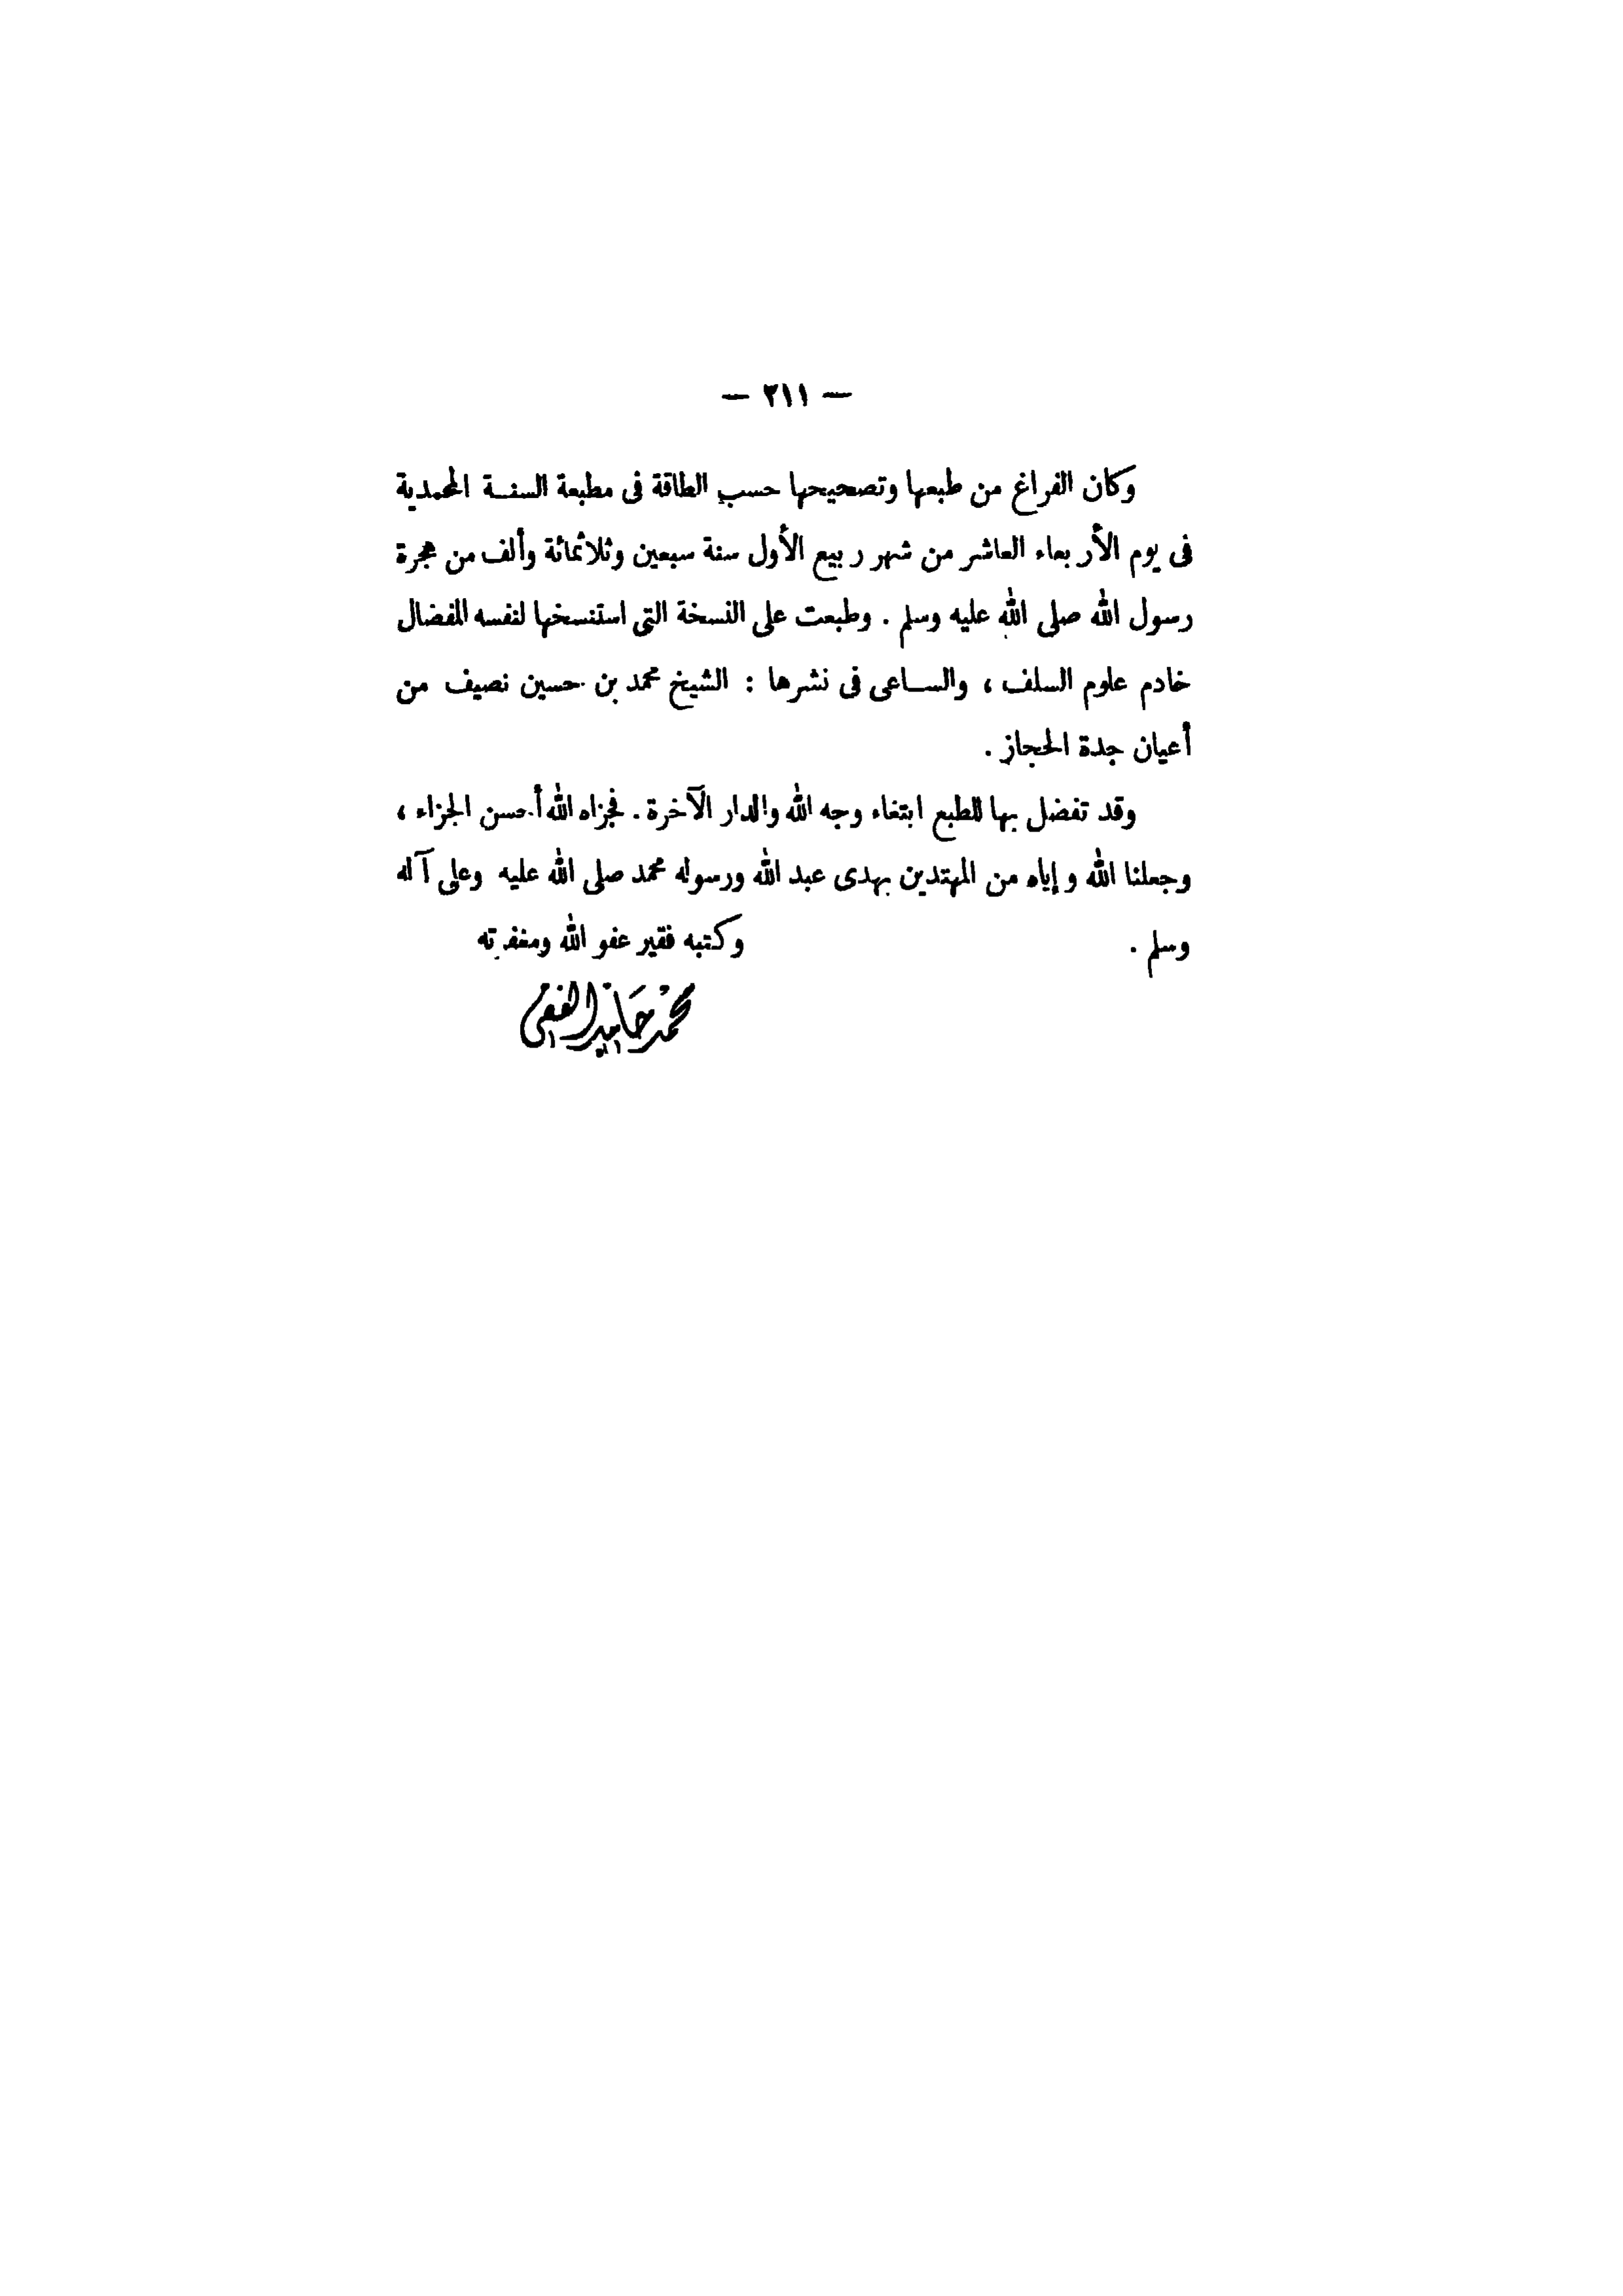 — ٢١١ —
وكان الفراغ من طبعها وتصحيحها حسب الطاقة فى مطبعة السنة المحمدية
فى يوم الأربعاء العاشر من شهر ربيع الأول سنة سبعين وثلاثمائة وألف من هجرة
رسول الله صلى الله عليه وسلم . وطبعت على النسخة التى استنسخها لنفسه المفضال
خادم علوم السلف ، والساعى فى نشرها : الشيخ محمد بن حسين نصيف من
أعيان جدة الحجاز .
وقد تفضل بها للطبع ابتغاء وجه الله والدار الآخرة . فجزاه الله أحسن الجزاء ،
وجعلنا الله وإياه من المهتدين بهدى عبد الله ورسوله محمد صلى الله عليه وعلى آله
وسلم . وكتبه فقير عفو الله ومغفرته
محمد حامد الفقى